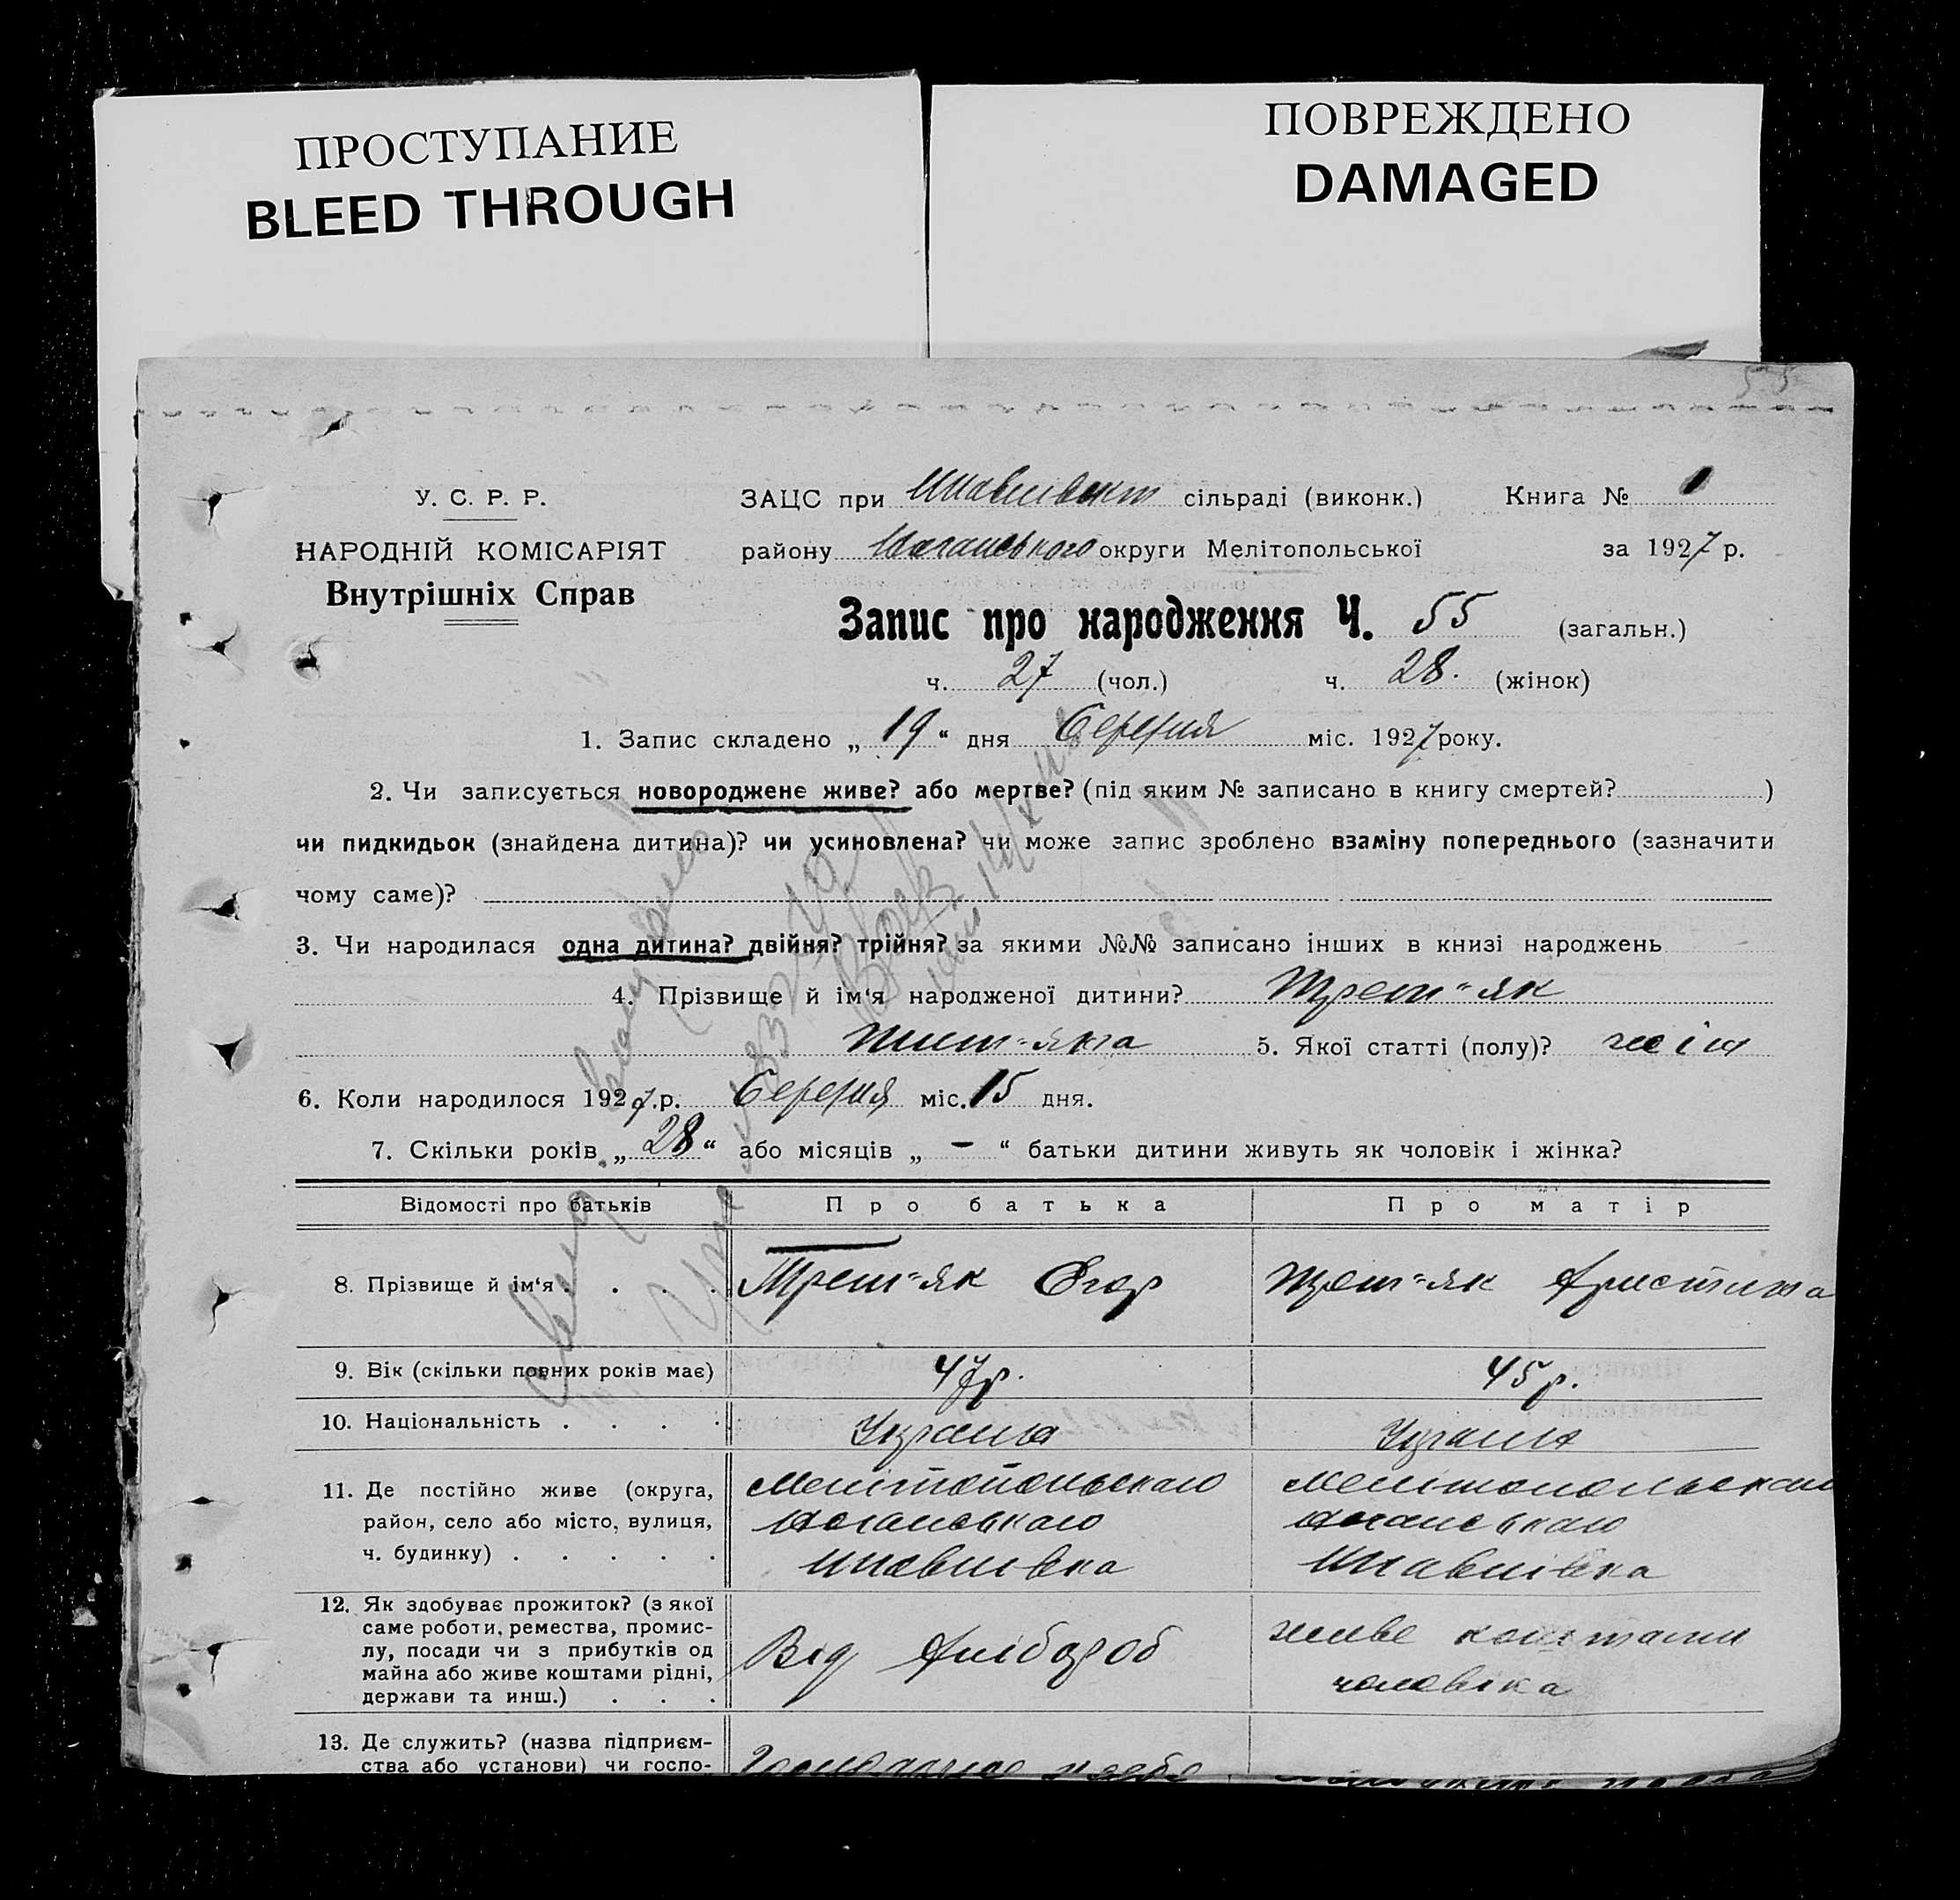 ПРОСТУПАНИЕ
BLEED THROUGH
ПОВРЕЖДЕНО
DAMAGED
55
У. С. Р. Р.
НАРОДНІЙ КОМІСАРІЯТ
Внутрішніх Справ
ЗАЦС при сільраді (виконк.) Книга №
району округи Мелітопольської за 1927 р.
Запис про народження Ч. 55 (загальн.)
ч. 27 (чол.) ч. 28. (жінок)
1. Запис складено „ 19 “ дня Серпня міс. 1927 року.
2. Чи записується новороджене живе? або мертве? (під яким № записано в книгу смертей? )
чи пидкидьок (знайдена дитина)? чи усиновлена? чи може запис зроблено взаміну попереднього (зазначити
чому саме)?
3. Чи народилася одна дитина? двійня? трійня? за якими №№ записано інших в книзі народжень
4. Прізвище й ім‘я народженої дитини? Трет=як
5. Якої статті (полу)? жін
6. Коли народилося 1927.р. Серпня міс. 15 дня.
7. Скільки років „ 28 “ або місяців „ — “ батьки дитини живуть як чоловік і жінка?
Відомості про батьків Про батька Про матір
8. Прізвище й ім‘я . . . . Трет=як Егор Трет=як Христина
9. Вік (скільки повних років має) 47 р. 45 р.
10. Національність . . . .
11. Де постійно живе (округа,
район, село або місто, вулиця,
ч. будинку) . . . . .
Мелітопольскаго
Мелітопольскаго
12. Як здобуває прожиток? (з якої
саме роботи, ремества, промис-
лу, посади чи з прибутків од
майна або живе коштами рідні,
держави та инш.) . . .
Від хлібороб
живе коштами
чоловіка
13. Де служить? (назва підприєм-
ства або установи) чи госпо-